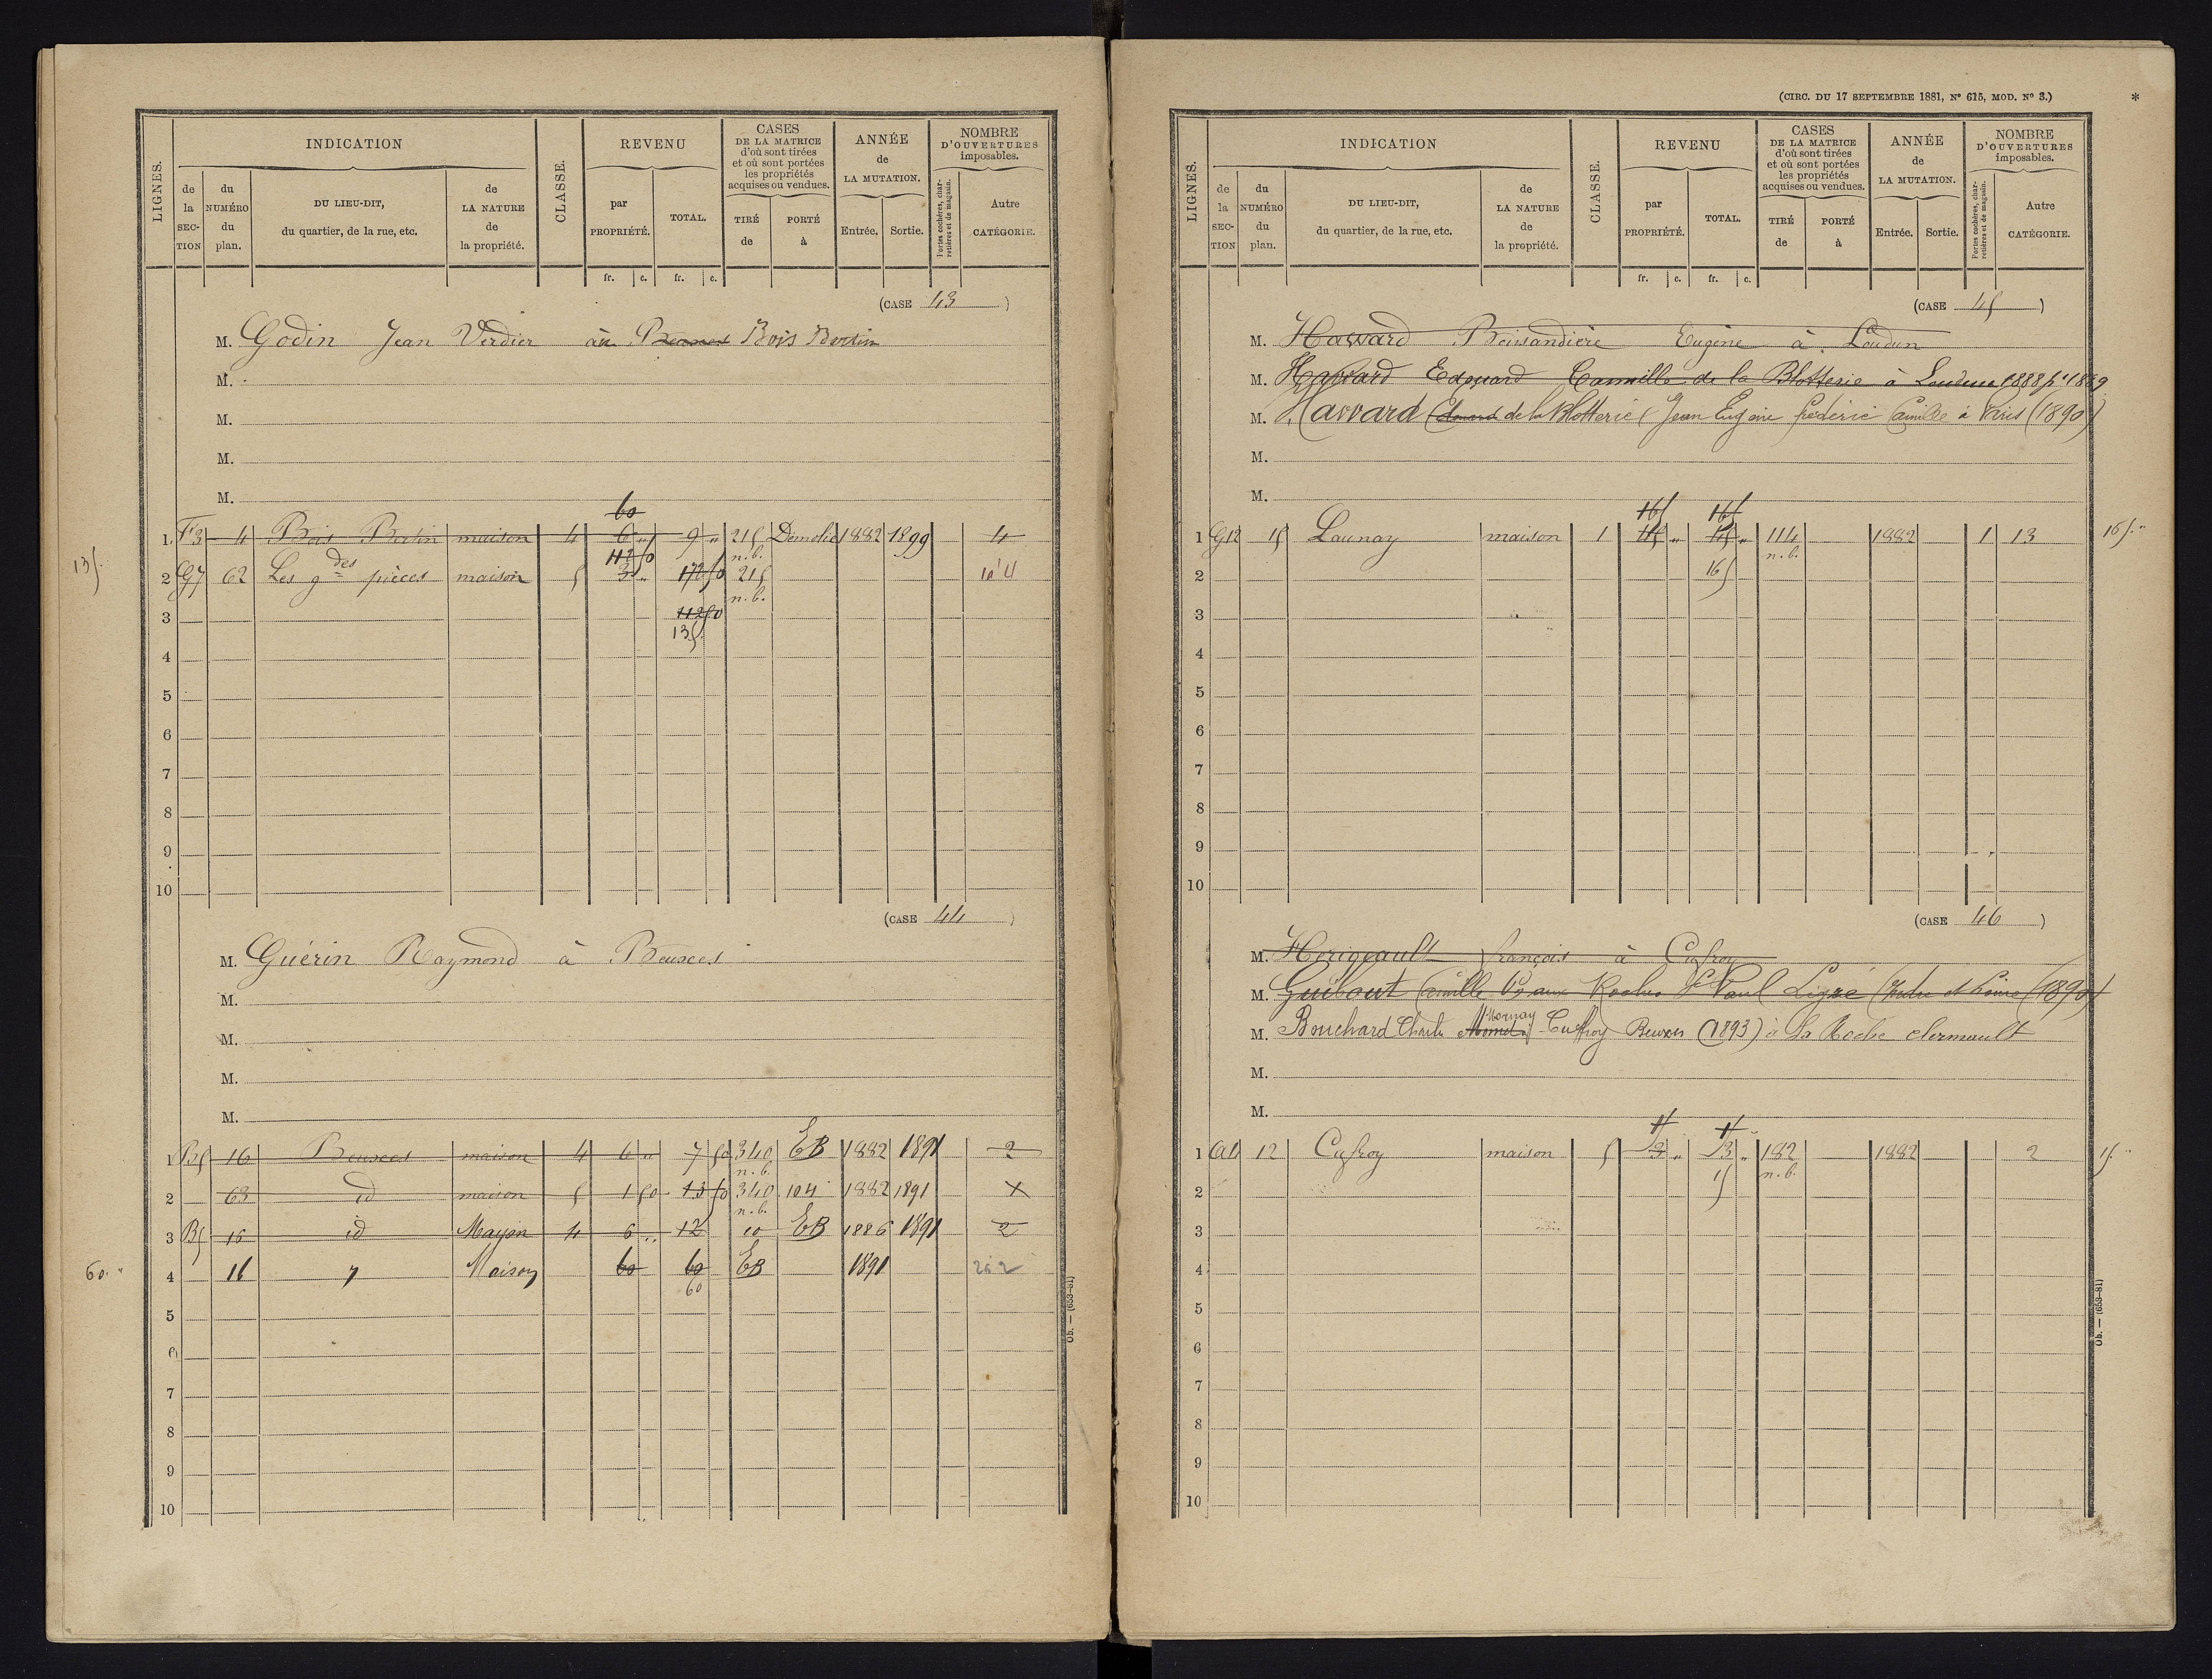 LIGNES.
INDICATION
de la SECTION
du NUMÉRO du plan.
DU LIEU-DIT, du quartier, de la rue, etc.
de LA NATURE de la propriété.
CLASSE.
REVENU
par PROPRIÉTÉ.
TOTAL.
fr. c. fr. c.
CASES DE LA MATRICE d'où sont tirées et où sont portées les propriétés acquises ou vendues.
TIRÉ de
PORTÉ à
ANNÉE de LA MUTATION.
Entrée. Sortie.
NOMBRE D'OUVERTURES imposables.
Portes cochères, charretières et de magasin.
Autre CATÉGORIE.
(CASE 43)
M. Godin Jean Verdier au Bois Bertin
M.
M.
M.
M.
60
1 F3 4 Bois Bertin maison 4 6 " 9 " 215 Démolie 1882 1899 4
112 50 n.b.
135. 2 G7 62 Les gdes pièces maison 5 3 " 172 50 215 4
n.b.
3 112 50
135
4
5
6
7
8
9
10
(CASE 44)
M. Guérin Raymond à Beuxes
M.
M.
M.
M.
1 B5 16 Beuxes maison 4 6 " 7 50 340 EB 1882 1891 2
n.b.
2 63 id maison 5 1 50 13 50 340 104 1882 1891 X
n.b.
3 B5 16 id Mayon 4 6 " 12 EB 1886 1891 2
60. " 4 16 Maison 60 60 EB 1891 2
60
5
6
7
8
9
10
Ob. — (653-81)
(CIRC. DU 17 SEPTEMBRE 1881, Nº 615, MOD. Nº 3.)
*
LIGNES.
INDICATION
de la SECTION
du NUMÉRO du plan.
DU LIEU-DIT, du quartier, de la rue, etc.
de LA NATURE de la propriété.
CLASSE.
REVENU
par PROPRIÉTÉ.
TOTAL.
fr. c. fr. c.
CASES DE LA MATRICE d'où sont tirées et où sont portées les propriétés acquises ou vendues.
TIRÉ de
PORTÉ à
ANNÉE de LA MUTATION.
Entrée. Sortie.
NOMBRE D'OUVERTURES imposables.
Portes cochères, charretières et de magasin.
Autre CATÉGORIE.
(CASE 45)
M. Haward Eugène à Loudun
M. Havard Edouard Camille de la Blotterie à Loudun 1888 pr 1889
M. Havard de la Blotterie (Jean Eugène frédéric Camille à Paris (1890)
M.
M.
165 165
1 G12 15 Launay maison 1 45 " 45 " 114 1882 1 13 165. "
n.b.
2 165
3
4
5
6
7
8
9
10
(CASE 46)
M. Herigeault françois à Cuffroy
M. Guibout Camille Vve aux Roches St Paul Ligré (Indre et Loire (1890)
Mornay
M. Bouchard Charles Cuffroy Beuxes (1893) à La Roche clermault
M.
M.
1 12 Cuffroy maison 5 3 " 3 " 182 1882 2 15. "
n.b.
2 15
3
4
5
6
7
8
9
10
Ob. — (653-81)